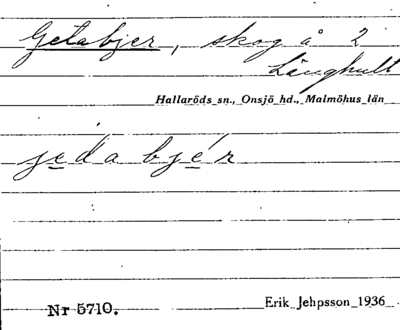 Getabjer, skog å 2
Långhult
Hallaröds sn., Onsjö hd., Malmöhus län
jedabjér
Nr 5710.
Erik Jehpsson 1936